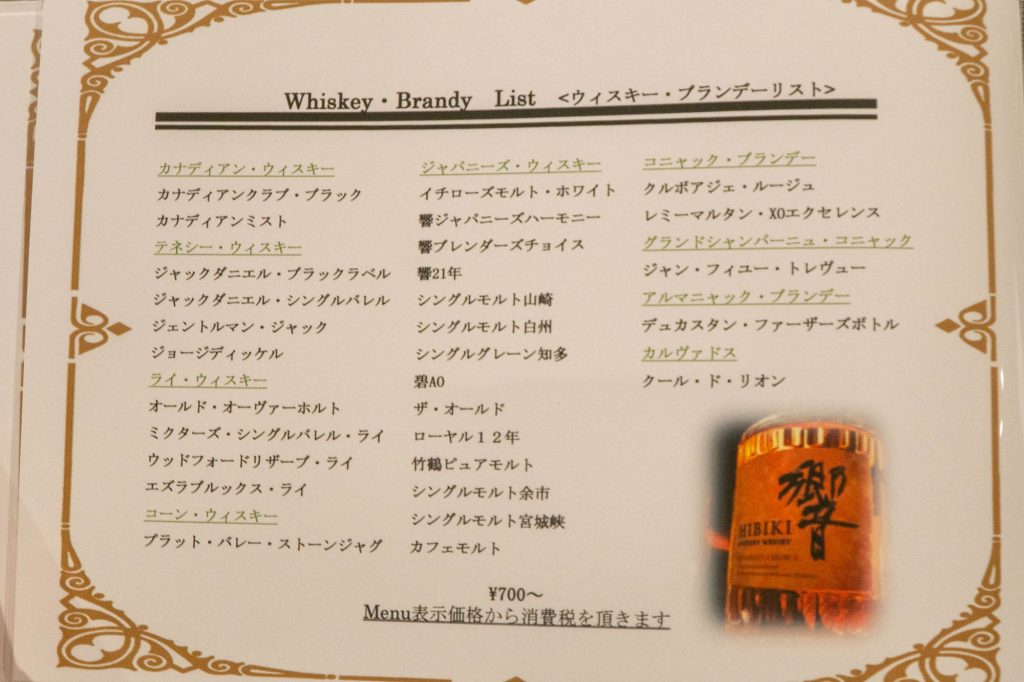 Whiskey・Brandy List <ウィスキー・ブランデーリスト>
カナディアン・ウィスキー
カナディアンクラブ・ブラック
カナディアンミスト
テネシー・ウィスキー
ジャックダニエル・ブラックラベル
ジャックダニエル・シングルバレル
ジェントルマン・ジャック
ジョージディッケル
ライ・ウィスキー
オールド・オーヴァーホルト
ミクターズ・シングルバレル・ライ
ウッドフォードリザーブ・ライ
エズラブルックス・ライ
コーン・ウィスキー
プラット・バレー・ストーンジャグ
ジャパニーズ・ウィスキー
イチローズモルト・ホワイト
響ジャパニーズハーモニー
響ブレンダーズチョイス
響21年
シングルモルト山崎
シングルモルト白州
シングルグレーン知多
碧AO
ザ・オールド
ローヤル12年
竹鶴ピュアモルト
シングルモルト余市
シングルモルト宮城峡
カフェモルト
コニャック・ブランデー
クルボアジェ・ルージュ
レミーマルタン・XOエクセレンス
グランドシャンパーニュ・コニャック
ジャン・フィユー・トレヴュー
アルマニャック・ブランデー
デュカスタン・ファーザーズボトル
カルヴァドス
クール・ド・リオン
響
HIBIKI
¥700～
Menu表示価格から消費税を頂きます